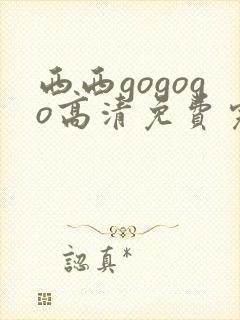 西西gogog
o高清免費
認真*